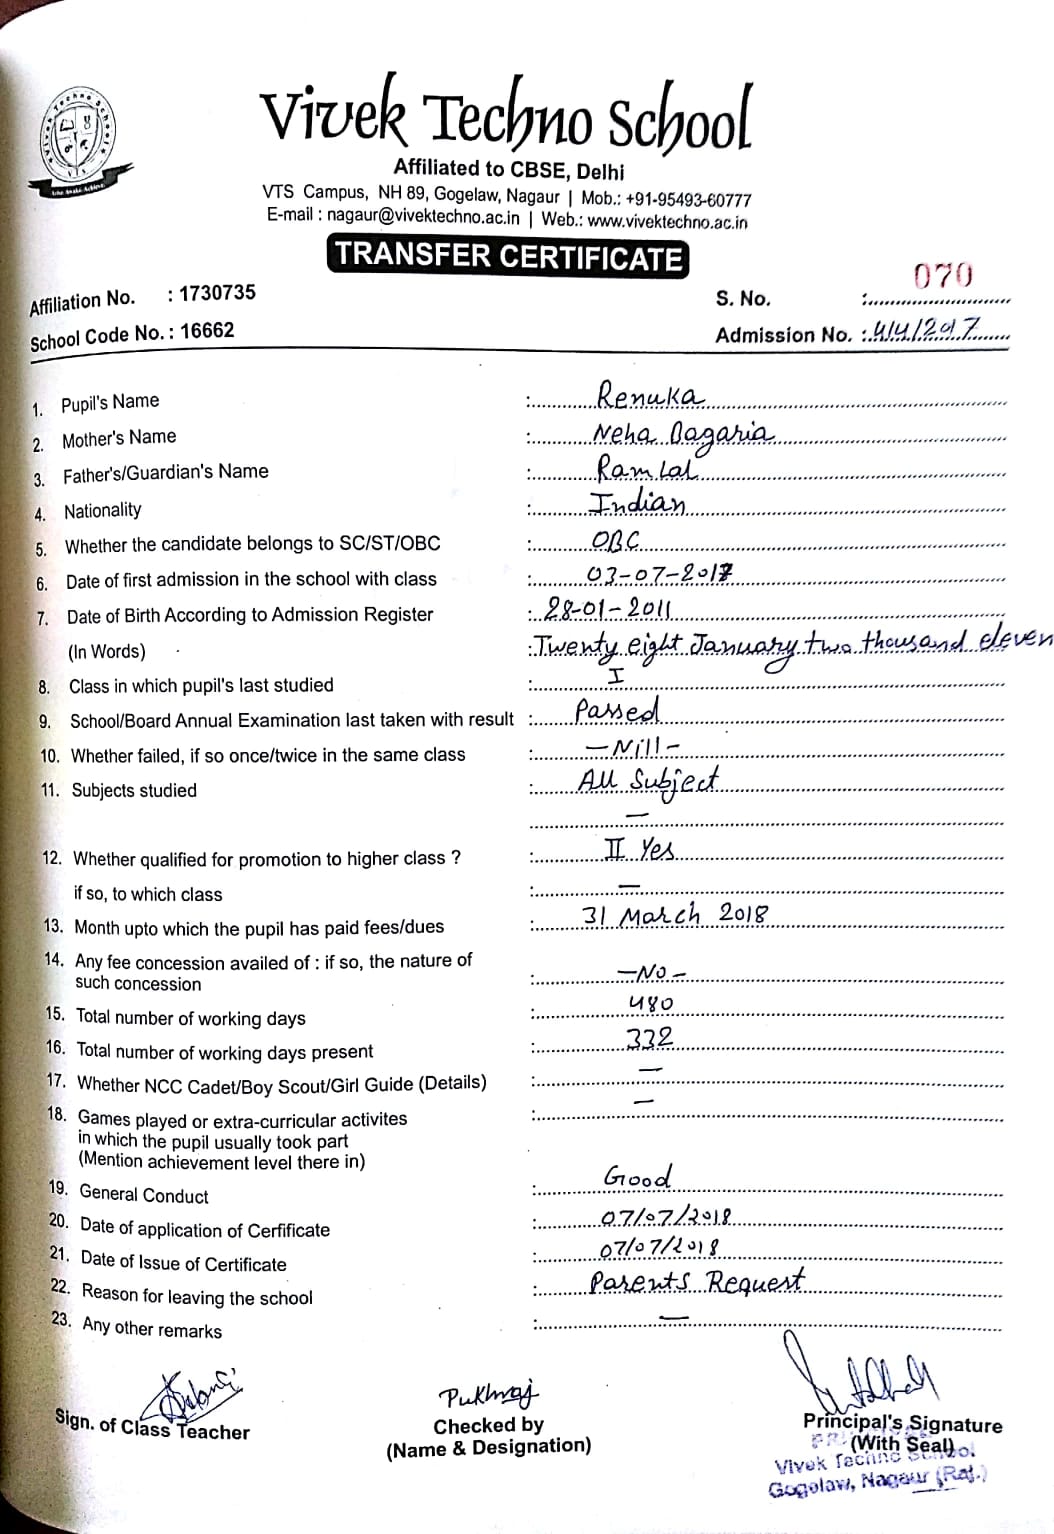 Vivek Techno School
Vivek Techno School
Affiliated to CBSE, Delhi
VTS Campus, NH 89, Gogelaw, Nagaur | Mob.: +91-95493-60777
E-mail : nagaur@vivektechno.ac.in | Web.: www.vivektechno.ac.in
TRANSFER CERTIFICATE
Affiliation No. : 1730735
S. No. : 070
School Code No. : 16662
Admission No. : 414/2017
1. Pupil's Name : Renuka
2. Mother's Name : Neha Dagaria
3. Father's/Guardian's Name : Ram Lal
4. Nationality : Indian
5. Whether the candidate belongs to SC/ST/OBC : OBC
6. Date of first admission in the school with class : 03-07-2017
7. Date of Birth According to Admission Register : 28-01-2011
(In Words) : Twenty eight January two thousand eleven
8. Class in which pupil's last studied : I
9. School/Board Annual Examination last taken with result : Passed
10. Whether failed, if so once/twice in the same class : -Nill-
11. Subjects studied : All Subject
—
12. Whether qualified for promotion to higher class ? : II Yes
if so, to which class : —
13. Month upto which the pupil has paid fees/dues : 31 March 2018
14. Any fee concession availed of : if so, the nature of
such concession : -No-
15. Total number of working days : 480
16. Total number of working days present : 332
17. Whether NCC Cadet/Boy Scout/Girl Guide (Details) : —
18. Games played or extra-curricular activites : —
in which the pupil usually took part
(Mention achievement level there in)
19. General Conduct : Good
20. Date of application of Cerfificate : 07/07/2018
21. Date of Issue of Certificate : 07/07/2018
22. Reason for leaving the school : Parents Request
23. Any other remarks : —
Pukhraj
Sign. of Class Teacher
Checked by
(Name & Designation)
Principal's Signature
(With Seal)
Vivek Techno School
Gogelaw, Nagaur (Raj.)